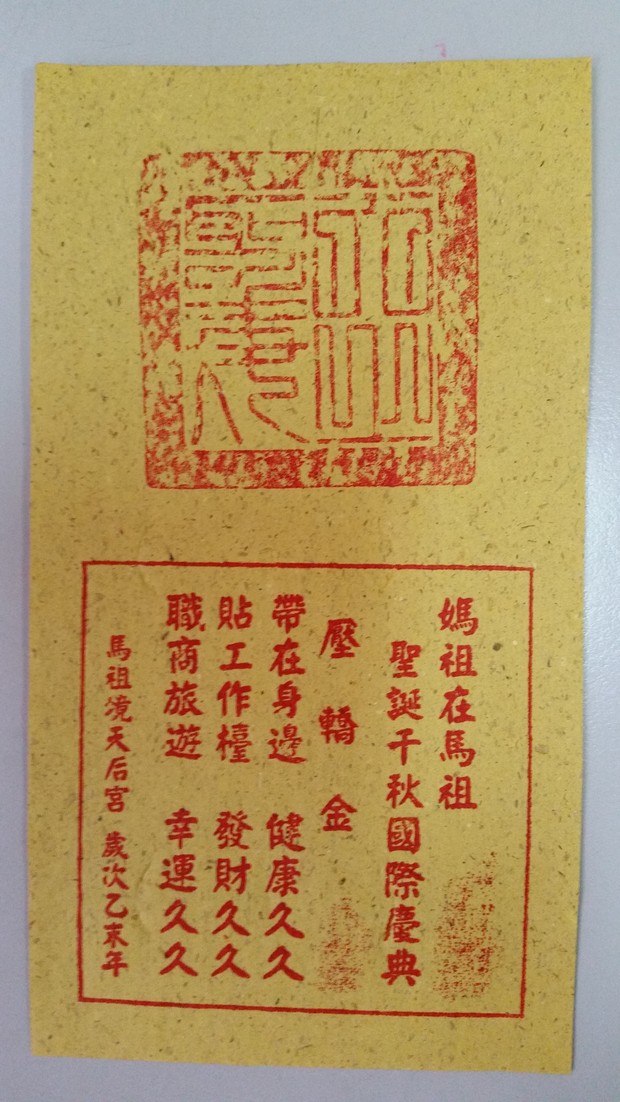 媽祖在馬祖
聖誕千秋國際慶典
壓轎金
帶在身邊 健康久久
貼工作檯 發財久久
職商旅遊 幸運久久
馬祖境天后宮 歲次乙未年